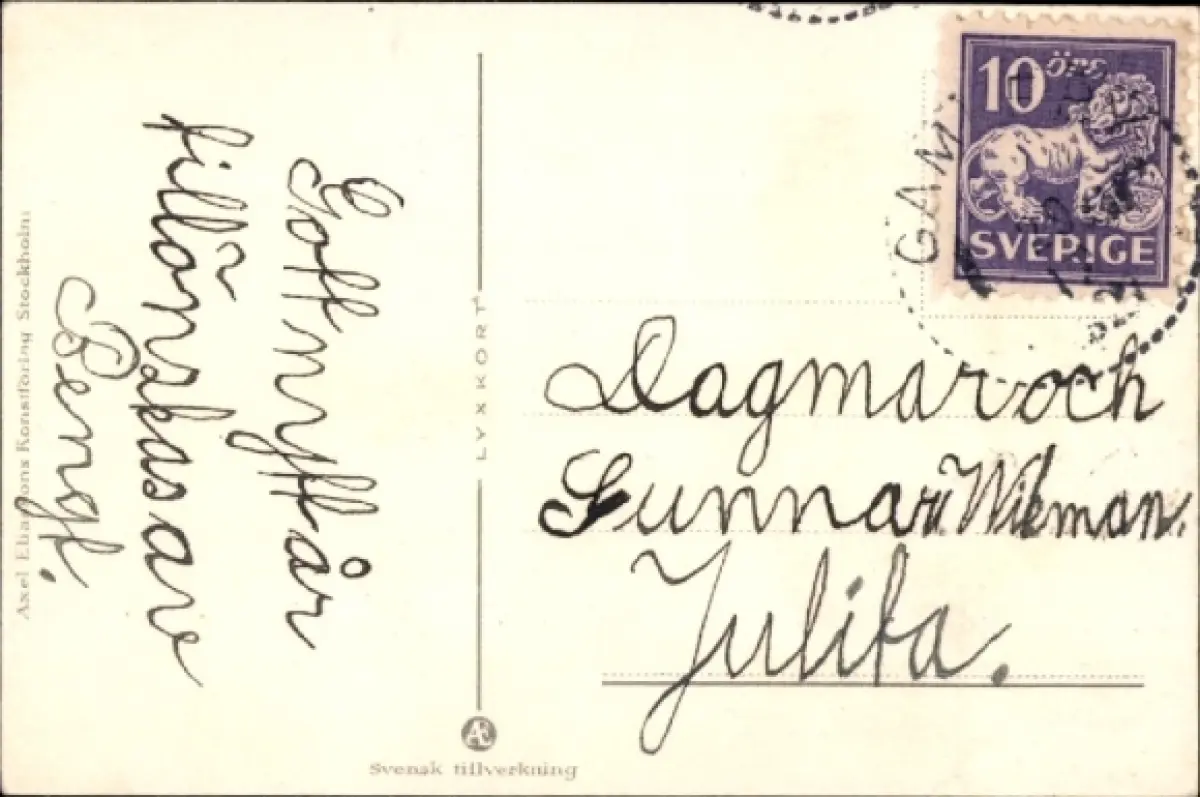 Gott nytt år
tillönskas av
Bengt.
Axel Eliassons Konstförlag Stockholm
LYXKORT
10 öre
SVERIGE
Dagmar och
Gunnar Wikman.
Julita.
Æ
Svensk tillverkning